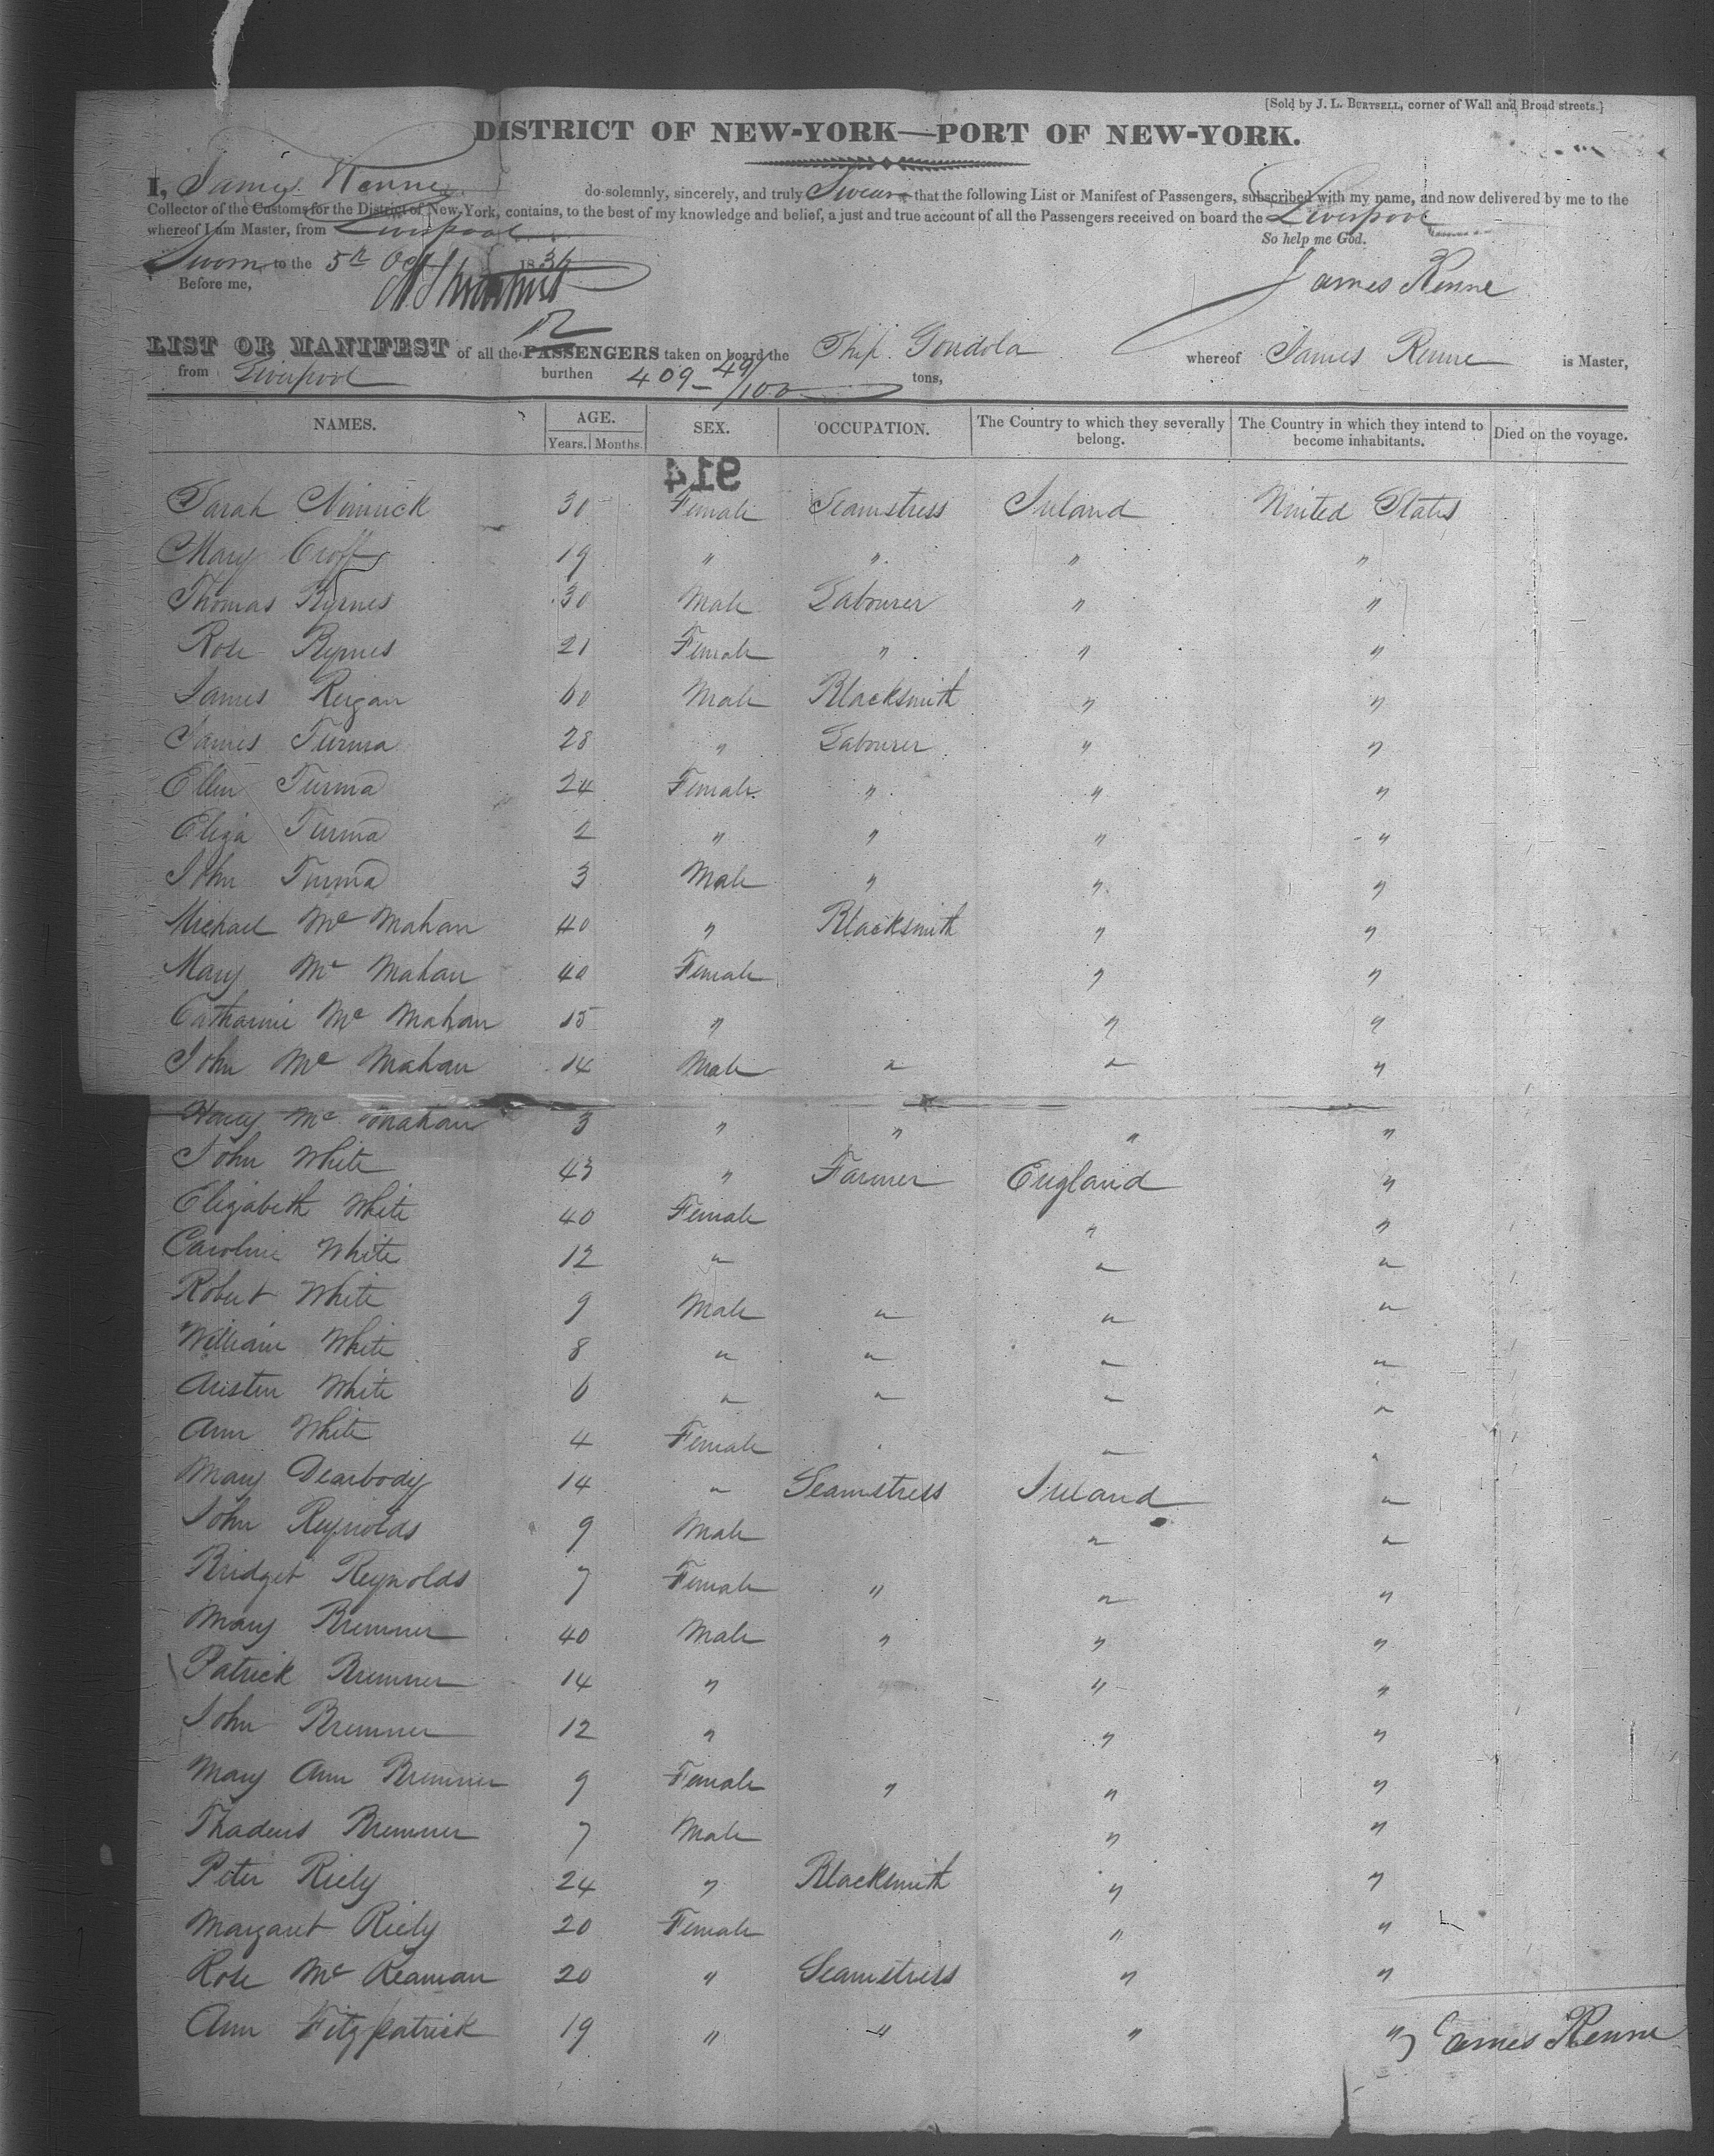 [Sold by J. L. BURTSELL, corner of Wall and Broad streets.]
DISTRICT OF NEW-YORK—PORT OF NEW-YORK.
I, James Renne do solemnly, sincerely, and truly Swear that the following List or Manifest of Passengers, subscribed with my name, and now delivered by me to the
Collector of the Customs for the District of New-York, contains, to the best of my knowledge and belief, a just and true account of all the Passengers received on board the Liverpool
whereof I am Master, from Liverpool
So help me God.
Sworn to the 5th Oct 1836
Before me,
James Renne
LIST OR MANIFEST of all the PASSENGERS taken on board the Ship Gondola whereof James Renne is Master,
from Liverpool burthen 409-49/100 tons,
NAMES. AGE. SEX. OCCUPATION. The Country to which they severally belong. The Country in which they intend to become inhabitants. Died on the voyage.
Years. Months.
914
Sarah 30 Female Seamstress Ireland United States
Mary Croft 19 " " " "
Thomas Byrnes 30 Male Labourer " "
Rose Byrnes 21 Female " " "
James Reigan 60 Male Blacksmith " "
James Turma 28 " Labourer " "
Ellen Turma 24 Female " " "
Eliza Turma 2 " " " "
John Turma 3 Male " " "
Michael Mc Mahan 40 " Blacksmith " "
Mary Mc Mahan 40 Female " "
Catharine Mc Mahan 15 " " "
John Mc Mahan 14 Male " " "
Henry Mc Mahan 3 " " " "
John White 43 " Farmer England "
Elizabeth White 40 Female " "
Caroline White 12 " " "
Robert White 9 Male " " "
William White 8 " " " "
Austin White 6 " " " "
Ann White 4 Female " " "
Mary Dearbody 14 " Seamstress Ireland "
John Reynolds 9 Male " "
Bridget Reynolds 7 Female " " "
Mary Bremner 40 Male " " "
Patrick Bremner 14 " " " "
John Bremner 12 " " "
Mary Ann Bremner 9 Female " " "
Thadeus Bremner 7 Male " "
Peter Riely 24 " Blacksmith " "
Margaret Riely 20 Female " "
Rose Mc Keaman 20 " Seamstress " "
Ann Fitzpatrick 19 " " " "
James Renne